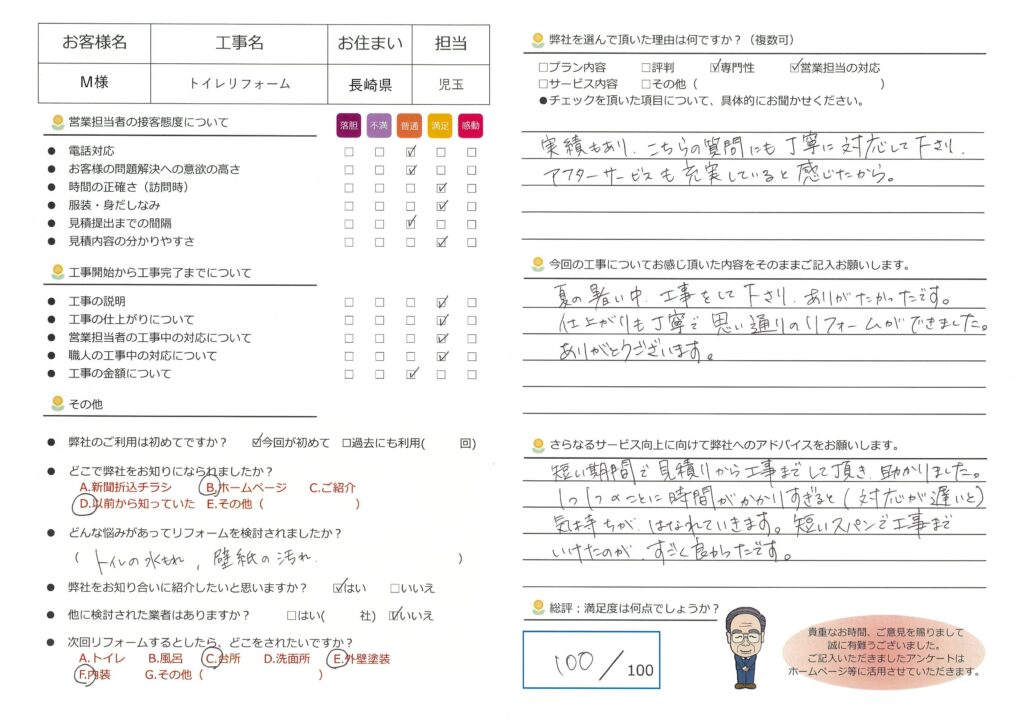 お客様名 工事名 お住まい 担当
M様 トイレリフォーム 長崎県 児玉
営業担当者の接客態度について 落胆 不満 普通 満足 感動
● 電話対応 □ □ ☑ □ □
● お客様の問題解決への意欲の高さ □ □ ☑ □ □
● 時間の正確さ（訪問時） □ □ □ ☑ □
● 服装・身だしなみ □ □ □ ☑ □
● 見積提出までの間隔 □ □ ☑ □ □
● 見積内容の分かりやすさ □ □ □ ☑ □
工事開始から工事完了までについて
● 工事の説明 □ □ □ ☑ □
● 工事の仕上がりについて □ □ □ ☑ □
● 営業担当者の工事中の対応について □ □ □ ☑ □
● 職人の工事中の対応について □ □ □ ☑ □
● 工事の金額について □ □ ☑ □ □
その他
● 弊社のご利用は初めてですか？ ☑今回が初めて □過去にも利用( 回)
● どこで弊社をお知りになられましたか？
A.新聞折込チラシ B.ホームページ C.ご紹介
D.以前から知っていた E.その他（ ）
● どんな悩みがあってリフォームを検討されましたか？
（ トイレの水もれ、壁紙の汚れ. ）
● 弊社をお知り合いに紹介したいと思いますか？ ☑はい □いいえ
● 他に検討された業者はありますか？ □はい( 社) ☑いいえ
● 次回リフォームするとしたら、どこをされたいですか？
A.トイレ B.風呂 C.台所 D.洗面所 E.外壁塗装
F.内装 G.その他（ ）
弊社を選んで頂いた理由は何ですか？（複数可）
□プラン内容 □評判 ☑専門性 ☑営業担当の対応
□サービス内容 □その他（ ）
●チェックを頂いた項目について、具体的にお聞かせください。
実績もあり、こちらの質問にも丁寧に対応して下さり、
アフターサービスも充実していると感じたから。
今回の工事についてお感じ頂いた内容をそのままご記入お願いします。
夏の暑い中、工事をして下さり、ありがたかったです。
仕上がりも丁寧で思い通りのリフォームができました。
ありがとうございます。
さらなるサービス向上に向けて弊社へのアドバイスをお願いします。
短い期間で見積りから工事までして頂き、助かりました。
1つ1つのことに時間がかかりすぎると(対応が遅いと)
気持ちが、はなれていきます。短いスパンで工事まで
いけたのが、すごく良かったです。
総評：満足度は何点でしょうか？
100/100
貴重なお時間、ご意見を賜りまして
誠に有難うございました。
ご記入いただきましたアンケートは
ホームページ等に活用させていただきます。